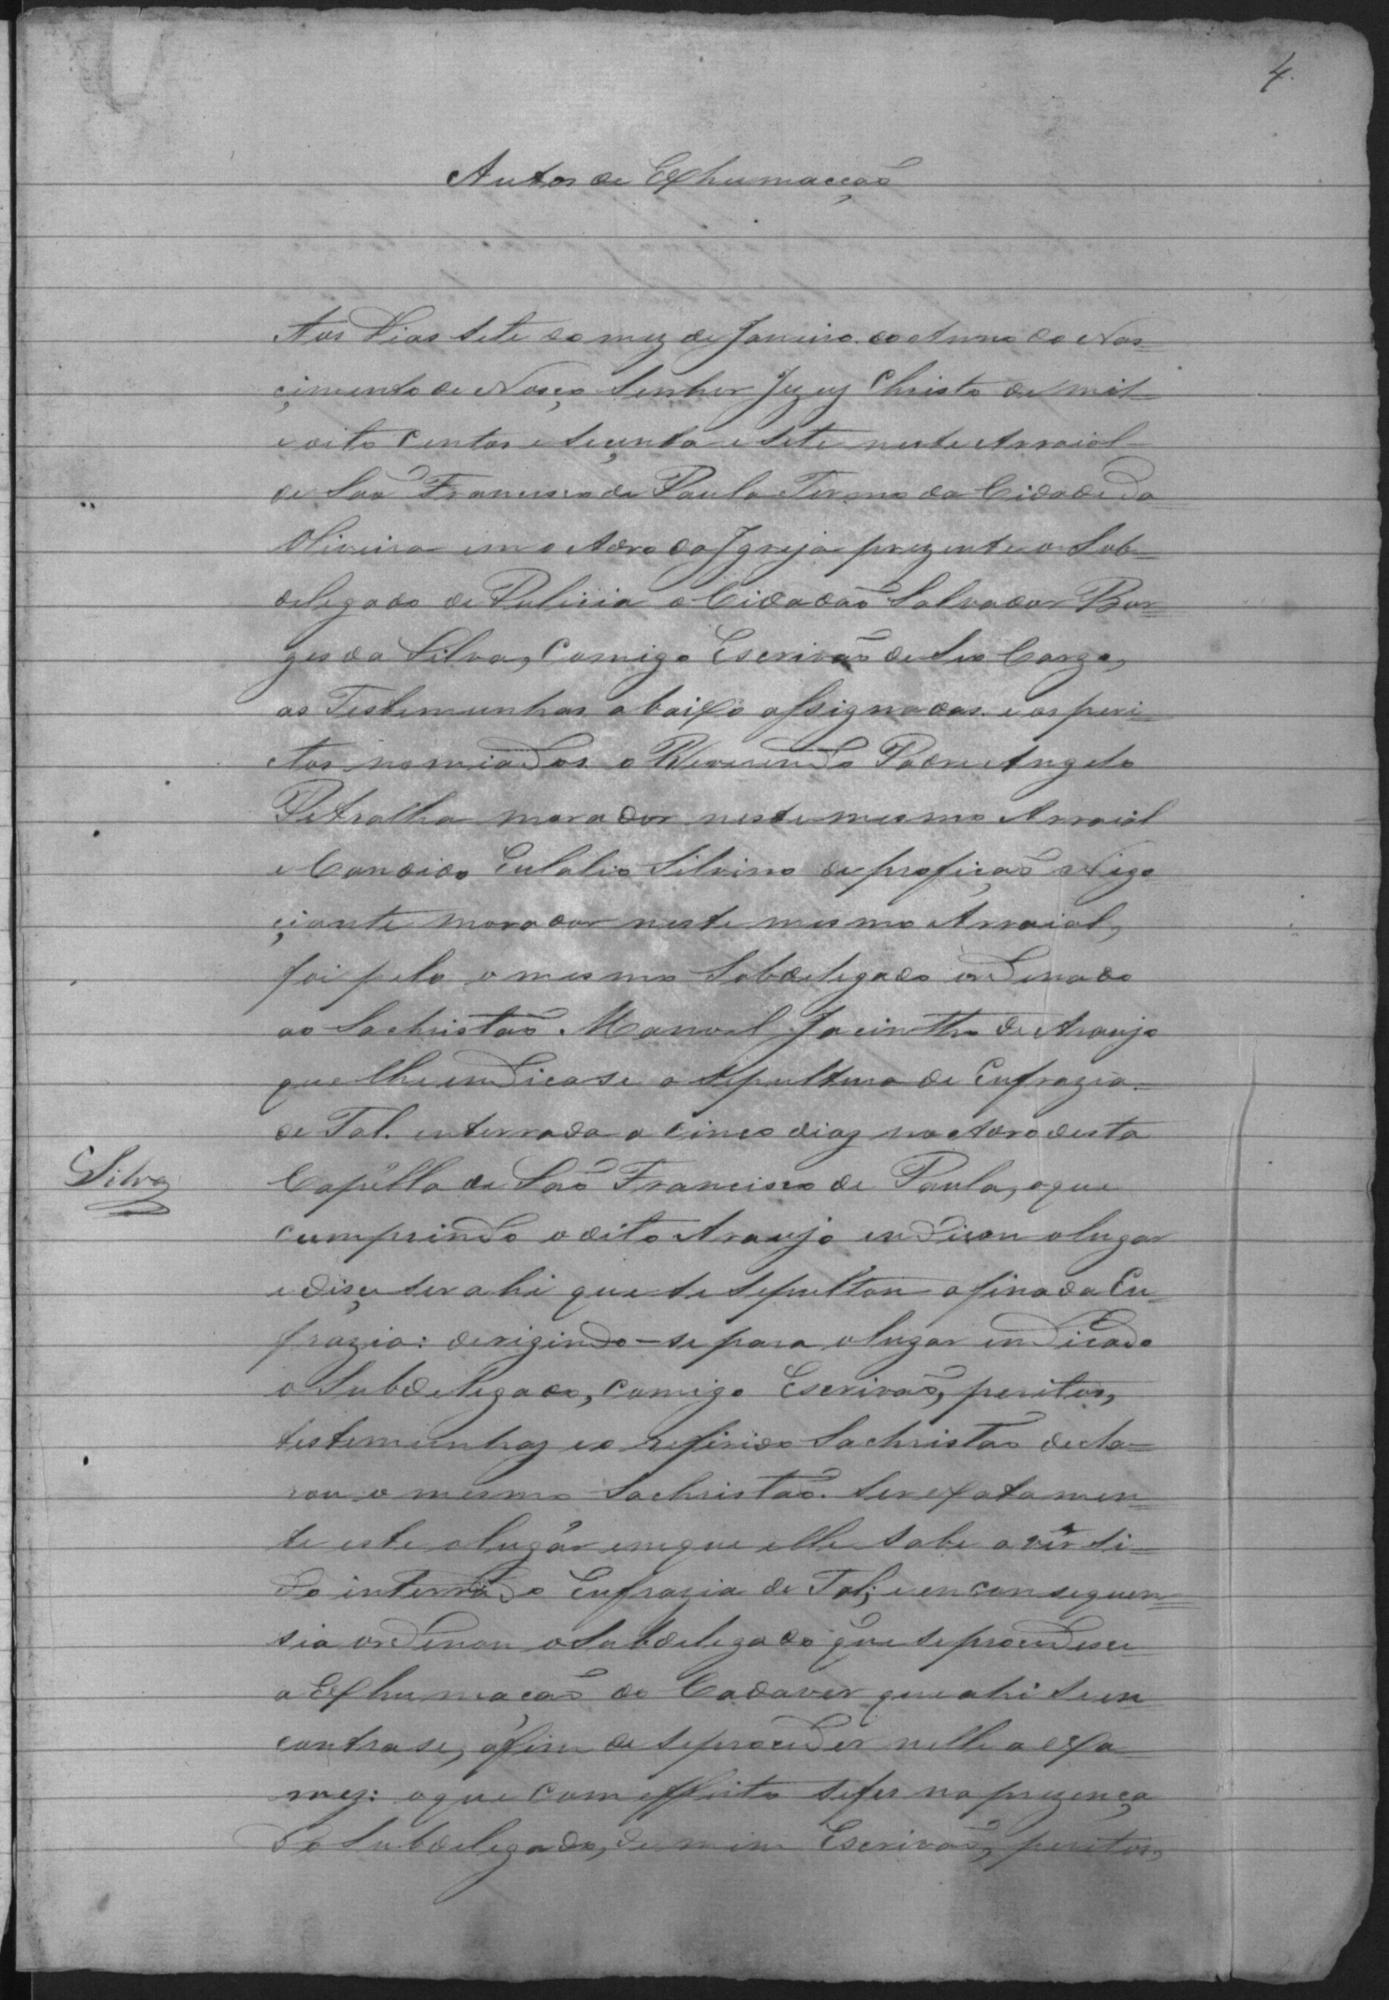 4.
Autos de Exhumacção
Aos Dias sete do mez de Janeiro do Anno do Nas=
çimento de Nosço Senhor Jezuz Christo de mil
e oito centos e seçenta e sete neste Arraial
de São Francisco de Paula Termo da Cidade da
Oliveira em o Adro da Igreja prezente o Sub=
delegado de Pulicia o Cidadão Salvador Bor=
ges da Silva, Comigo Escrivão de Seo Cargo,
as Testemunhas abaixo assignadas e os peri=
tos nomiados o Reverendo Padre Angelo
Petralha morador neste mesmo Arraial
e Candido Eulalio Silvino de profição Nigo
çiante morador neste mesmo Arraial,
foi pelo o mesmo Sobdelegado ordenado
ao Sachristão Manoel Jacintho de Araujo
que lhe indicase a sepultura de Eufrazia
de Tal. enterrada a cinco diaz no Adro desta
Silva
Capella de São Francisco de Paula, o que
cumprindo o dito Araujo endicou o lugar
e disçe ser ahi que se sepultou a finada Eu=
frazia: derigindo-se para o lugar endicado
o Subdelegado, comigo Escrivão, peritos,
testemunhaz e o referido Sachristão decla=
rou o mesmo Sachristão ser exatamen=
te este o lugar em que elle sabe aver si=
do interrado Eufrazia de Tal; e en conseguen=
sia ordenou o Subdelegado que se procedesce
a Exhumação do Cadaver que ahi se en
contrase, afim de se proceder nelle a exa
mez: o que com effeito se fes na prezença
do Subdelegado, de mim Escrivão, peritos,